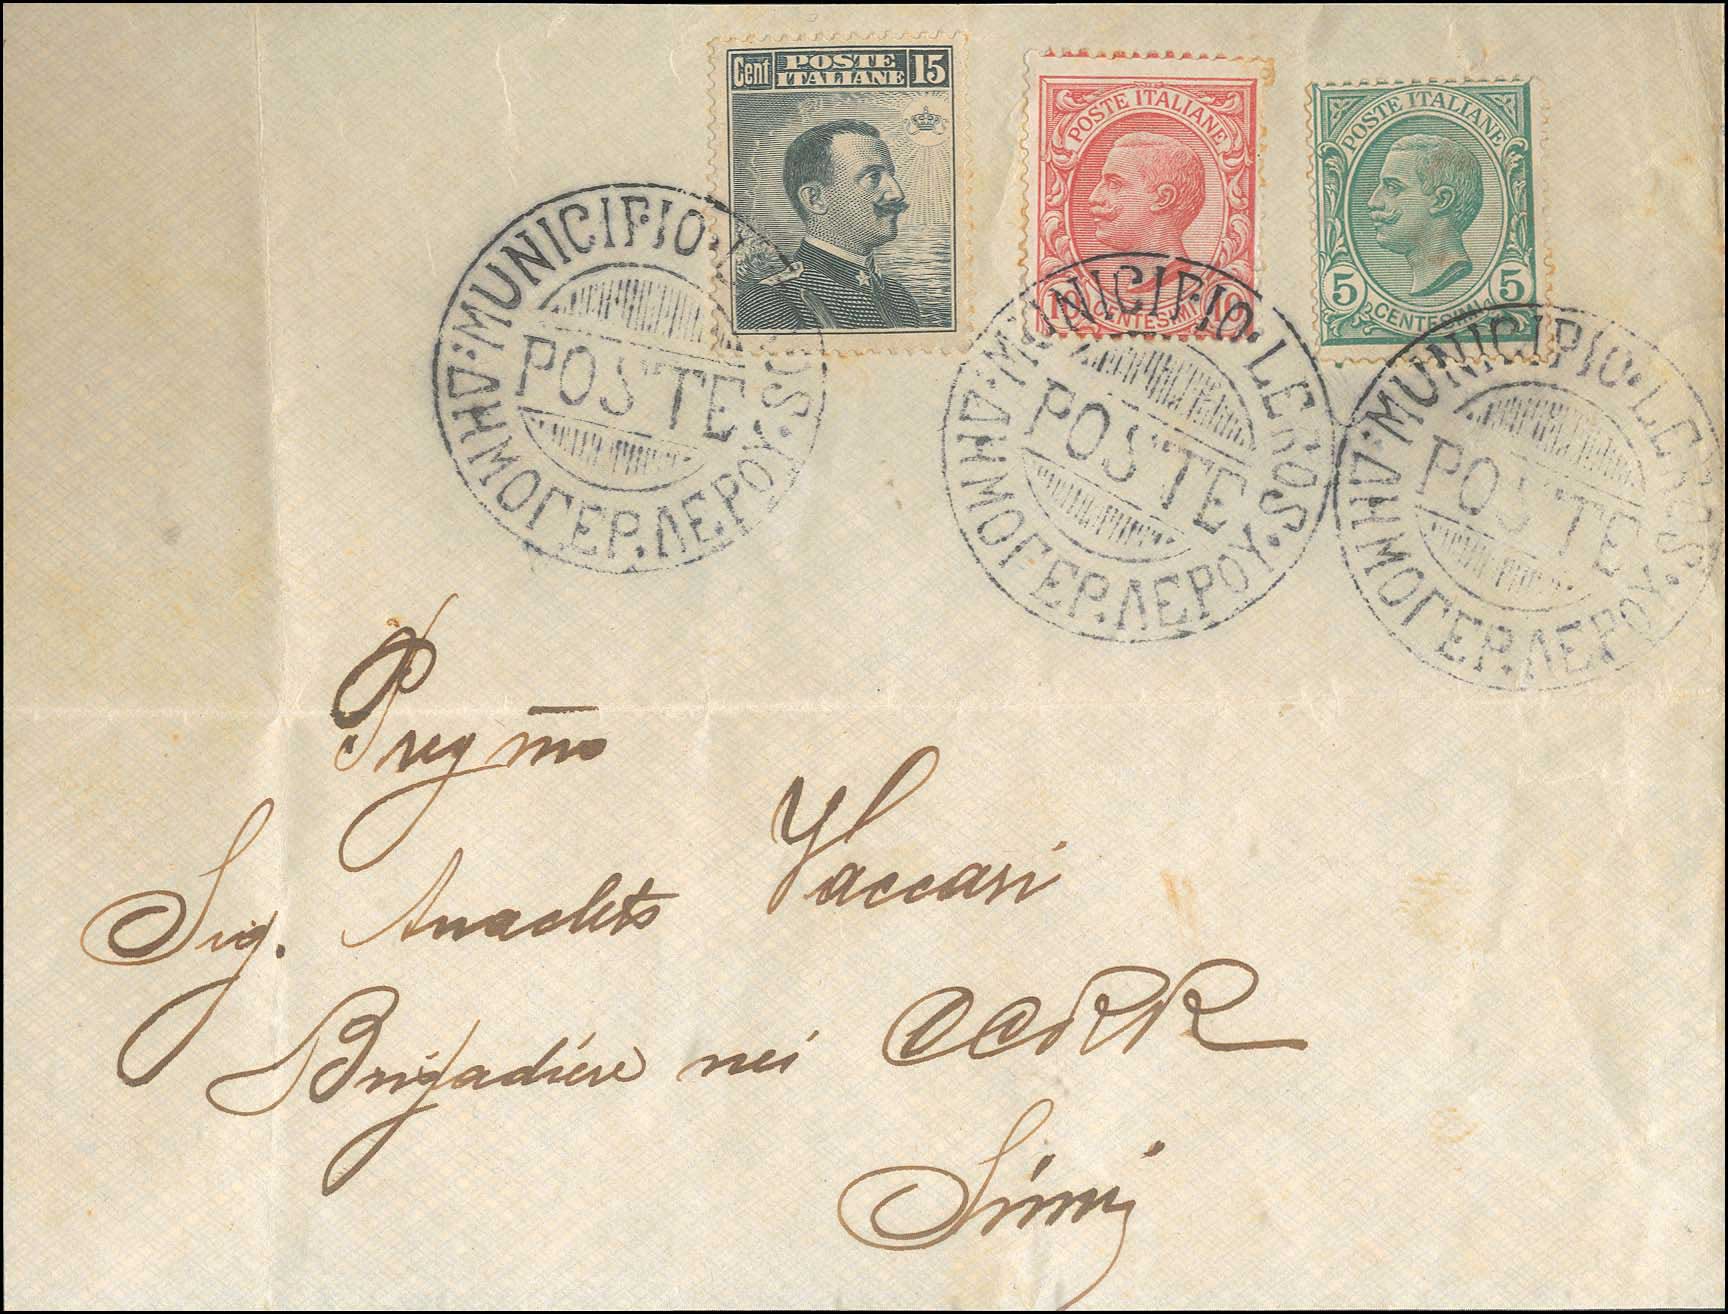 Cent POSTE ITALIANE 15
POSTE ITALIANE
10 CENTESIMI 10
POSTE ITALIANE
5 CENTESIMI 5
MUNICIPIO · LEROS · ΔΗΜΟΓΕΡ. ΛΕΡΟΥ.
POSTE
MUNICIPIO · LEROS · ΔΗΜΟΓΕΡ. ΛΕΡΟΥ.
POSTE
MUNICIPIO · LEROS · ΔΗΜΟΓΕΡ. ΛΕΡΟΥ.
POSTE
Pregmo
Sig. Anacleto Vaccari
Brigadiere nei CCRR
Simi